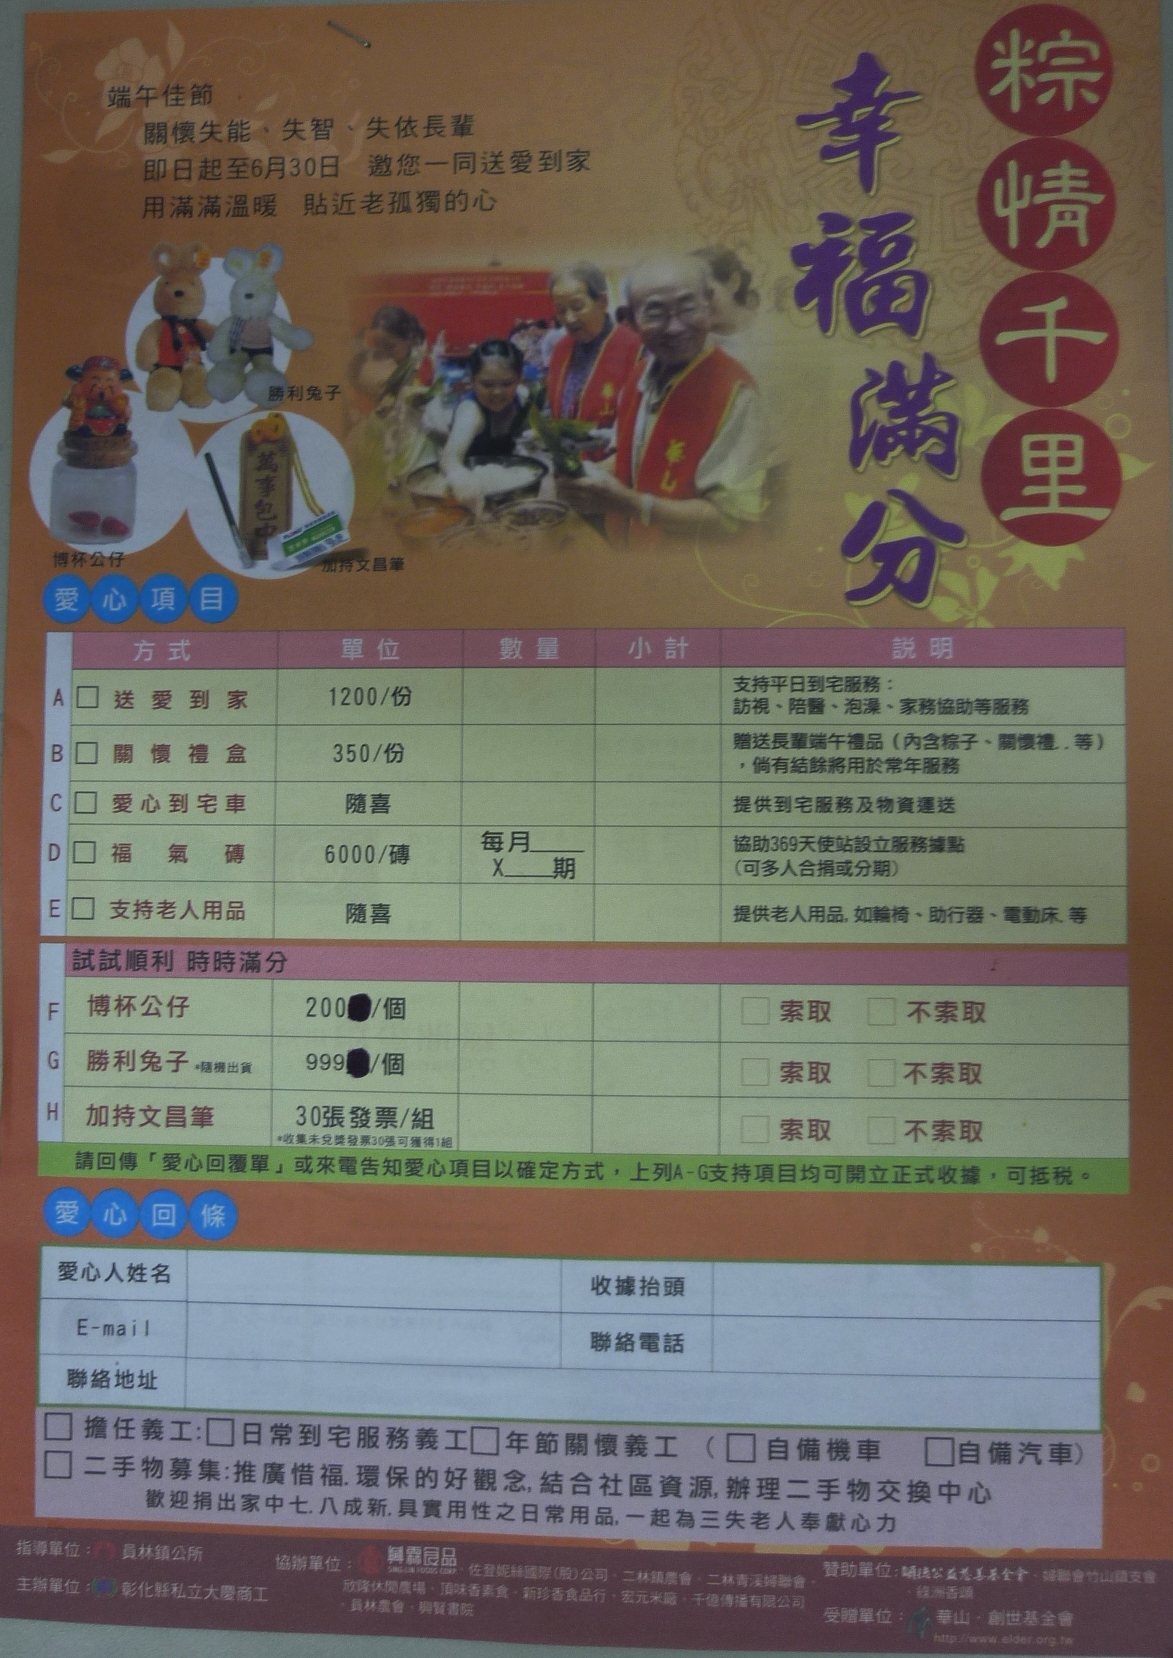 粽情千里
幸福滿分
端午佳節
關懷失能、失智、失依長輩
即日起至6月30日 邀您一同送愛到家
用滿滿溫暖 貼近老孤獨的心
勝利兔子
萬事包中
博杯公仔
加持文昌筆
愛心項目
方式 單位 數量 小計 說明
A □ 送愛到家 1200/份 支持平日到宅服務：
訪視、陪醫、泡澡、家務協助等服務
B □ 關懷禮盒 350/份 贈送長輩端午禮品（內含粽子、關懷禮..等）
，倘有結餘將用於常年服務
C □ 愛心到宅車 隨喜 提供到宅服務及物資運送
D □ 福氣磚 6000/磚 每月____ X____期 協助369天使站設立服務據點
(可多人合捐或分期)
E □ 支持老人用品 隨喜 提供老人用品,如輪椅、助行器、電動床.等
試試順利 時時滿分
F 博杯公仔 200/個 □ 索取 □ 不索取
G 勝利兔子 *隨機出貨 999/個 □ 索取 □ 不索取
H 加持文昌筆 30張發票/組 □ 索取 □ 不索取
*收集未兌獎發票30張可獲得1組
請回傳「愛心回覆單」或來電告知愛心項目以確定方式，上列A-G支持項目均可開立正式收據，可抵稅。
愛心回條
愛心人姓名 收據抬頭
E-mail 聯絡電話
聯絡地址
□ 擔任義工:□日常到宅服務義工□年節關懷義工 (□自備機車 □自備汽車)
□ 二手物募集:推廣惜福.環保的好觀念,結合社區資源,辦理二手物交換中心
歡迎捐出家中七.八成新.具實用性之日常用品,一起為三失老人奉獻心力
指導單位: 員林鎮公所
主辦單位: 彰化縣私立大慶商工
協辦單位: 興霖食品 佐登妮絲國際(股)公司、二林鎮農會、二林青溪婦聯會、
欣隆休閒農場、頂味香素食、新珍香食品行、宏元米廠、千億傳播有限公司
、員林農會、興賢書院
贊助單位: 公益慈善基金會、婦聯會竹山鎮支會
、綠洲香頌
受贈單位: 華山．創世基金會
http://www.elder.org.tw